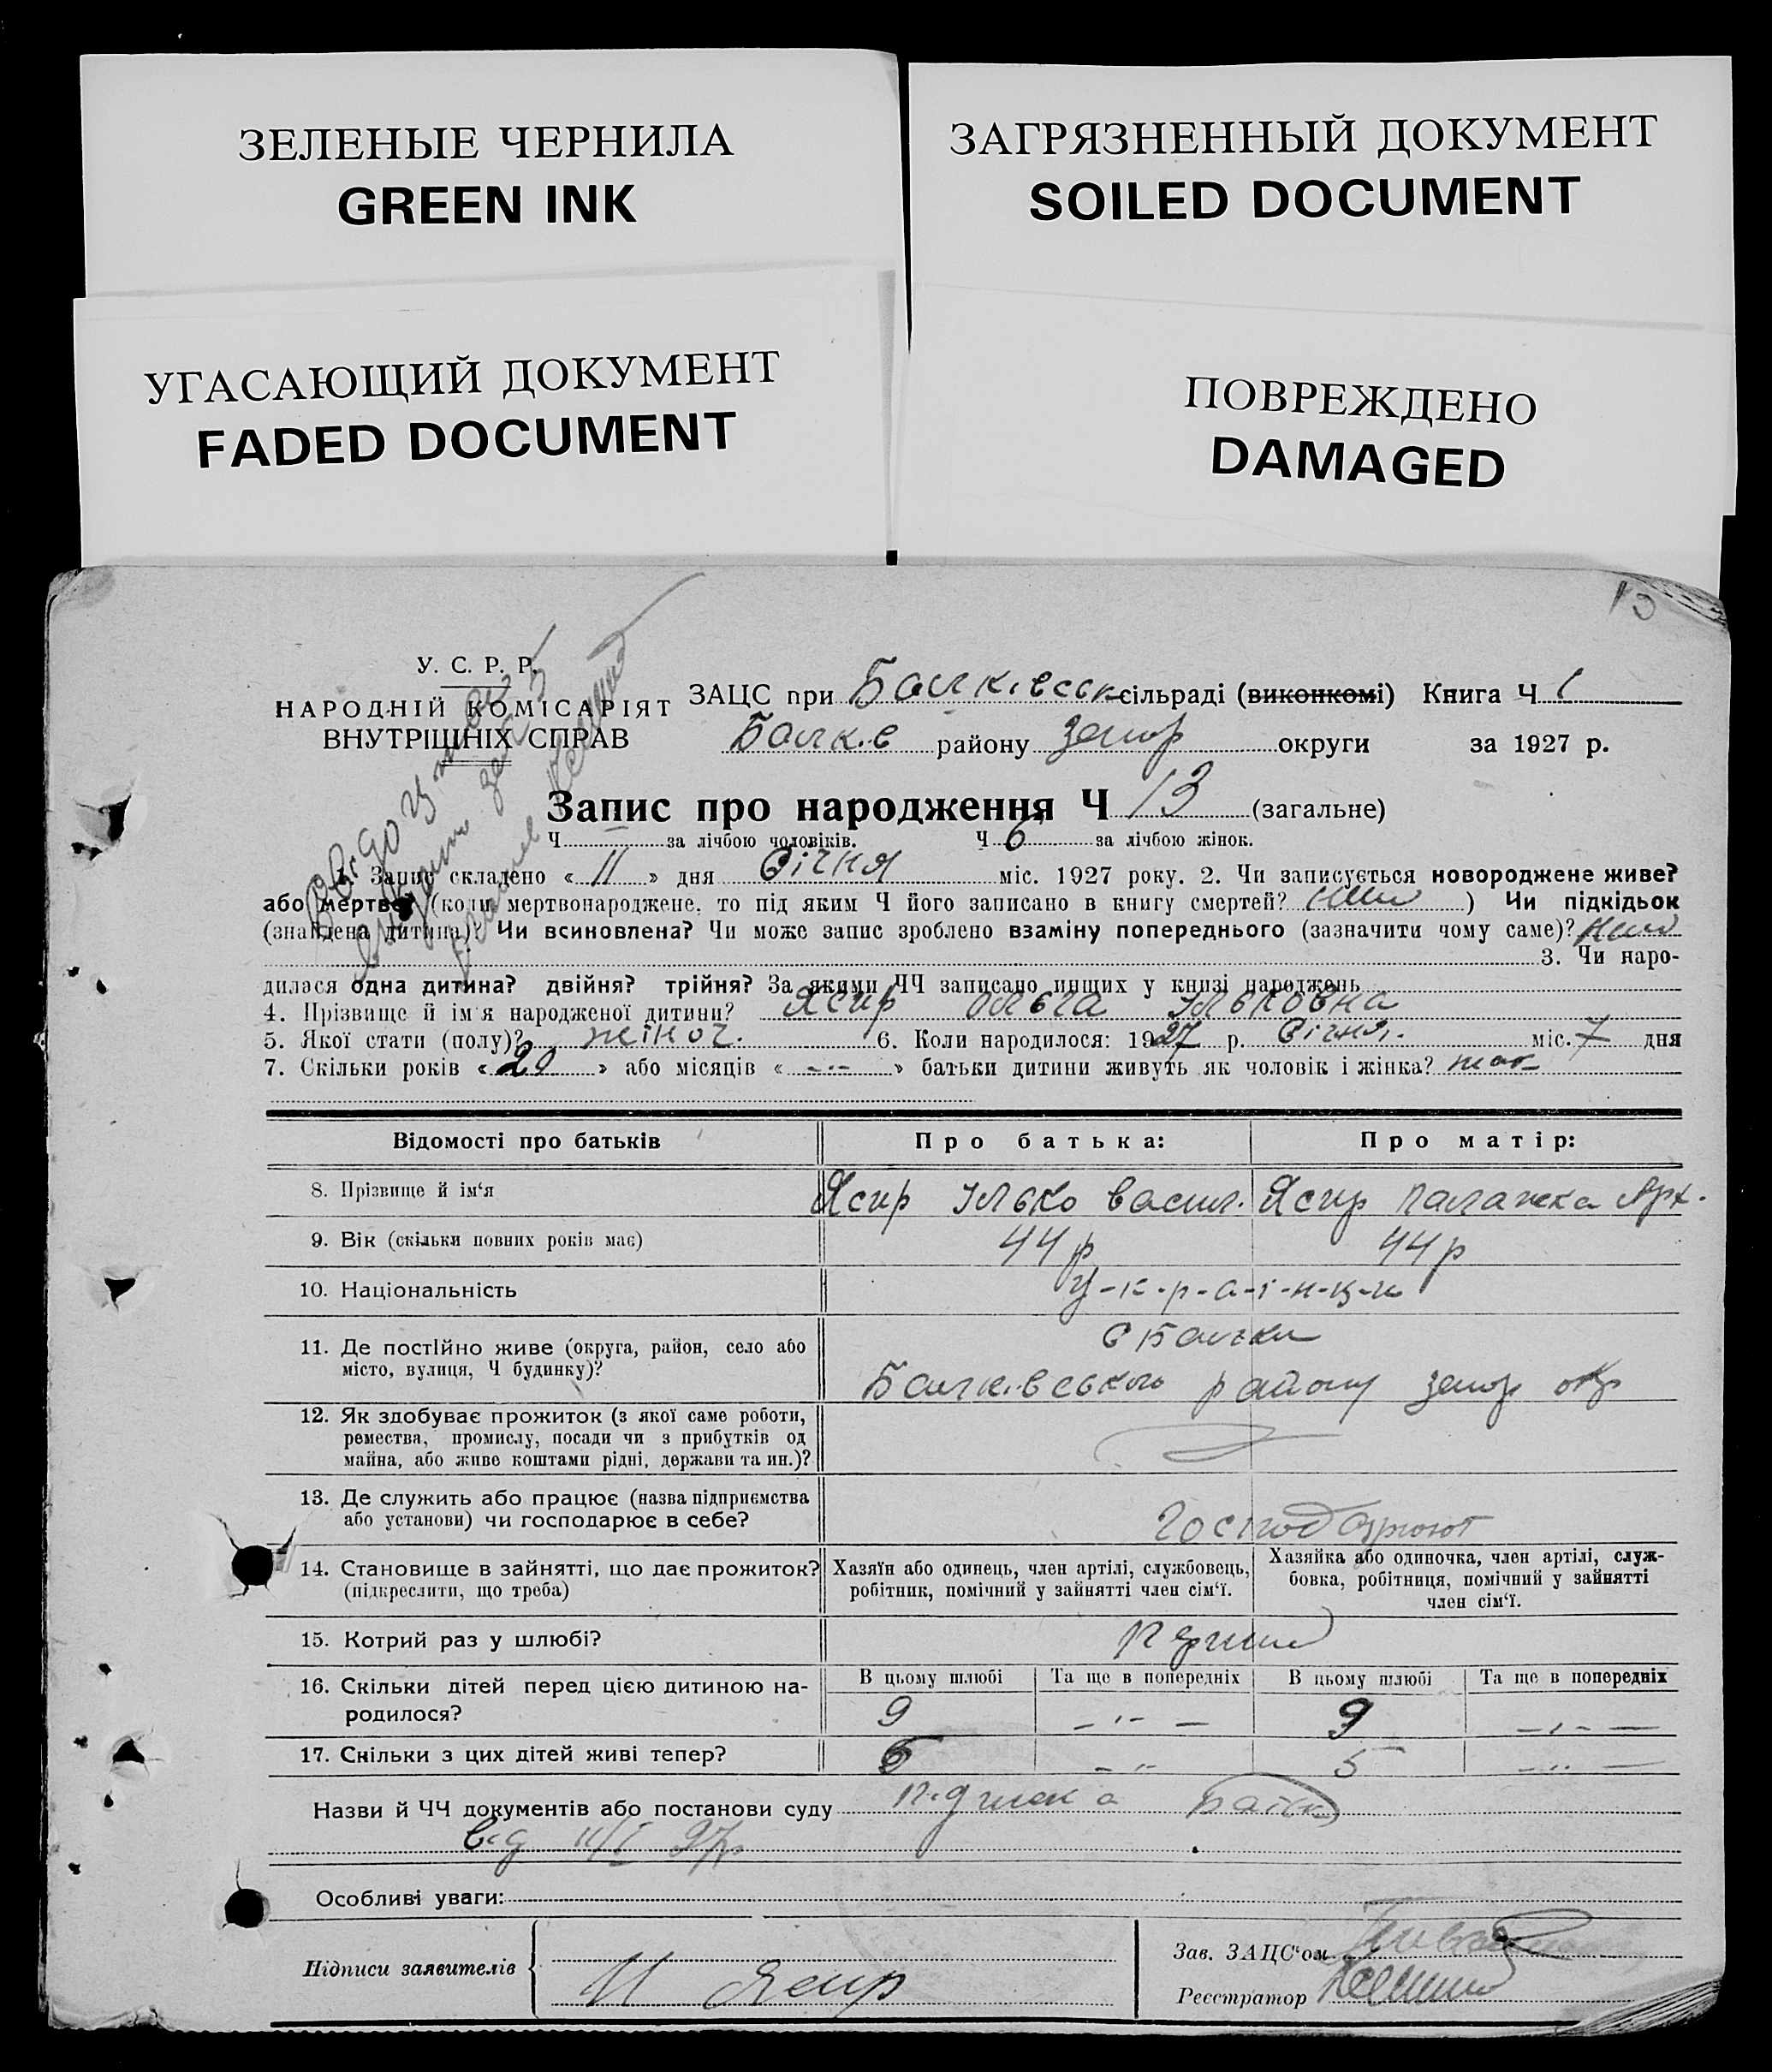 ЗЕЛЕНЫЕ ЧЕРНИЛА
GREEN INK
ЗАГРЯЗНЕННЫЙ ДОКУМЕНТ
SOILED DOCUMENT
УГАСАЮЩИЙ ДОКУМЕНТ
FADED DOCUMENT
ПОВРЕЖДЕНО
DAMAGED
У. С. Р. Р.
НАРОДНІЙ КОМІСАРІЯТ
ВНУТРІШНІХ СПРАВ
ЗАЦС при Балківськ сільраді (виконкомі) Книга Ч 1
Балків району запор округи за 1927 р.
Запис про народження Ч 13 (загальне)
Ч — за лічбою чоловіків. Ч 6 за лічбою жінок.
1. Запис складено « 11 » дня Січня міс. 1927 року. 2. Чи записується новороджене живе?
або мертве? (коли мертвонароджене, то під яким Ч його записано в книгу смертей? ) Чи підкідьок
(знайдена дитина)? Чи всиновлена? Чи може запис зроблено взаміну попереднього (зазначити чому саме)?
3. Чи наро-
дилася одна дитина? двійня? трійня? За якими ЧЧ записано инщих у книзі народжень
4. Прізвище й ім'я народженої дитини? Ясир Ольга Ільковна
5. Якої стати (полу)? жіноч. 6. Коли народилося: 1927 р. Січня. міс. 7 дня
7. Скільки років « 20 » або місяців « -..- » батьки дитини живуть як чоловік і жінка? так
Відомості про батьків Про батька: Про матір:
8. Прізвище й ім'я Ясир Ілько васил. Ясир Палажка Арх.
9. Вік (скільки повних років має) 44 р 44 р
10. Національність У-к-р-а-ї-н-ц-и
11. Де постійно живе (округа, район, село або
місто, вулиця, Ч будинку)?
С Балки
Балківського району запор окр
12. Як здобуває прожиток (з якої саме роботи,
ремества, промислу, посади чи з прибутків од
майна, або живе коштами рідні, держави та ин.)?
13. Де служить або працює (назва підприємства
або установи) чи господарює в себе?
Господарюют
14. Становище в зайнятті, що дає прожиток?
(підкреслити, що треба)
Хазяїн або одинець, член артілі, службовець,
робітник, помічний у зайнятті член сім'ї.
Хазяйка або одиночка, член артілі, служ-
бовка, робітниця, помічний у зайнятті
член сім'ї.
15. Котрий раз у шлюбі?
16. Скільки дітей перед цією дитиною на-
родилося?
В цьому шлюбі Та ще в попередніх В цьому шлюбі Та ще в попередніх
9 -..- — 9 -..- —
17. Скільки з цих дітей живі тепер? -..- 5 -..- —
Назви й ЧЧ документів або постанови суду
від 11/I 27р
Особливі уваги:
Підписи заявителів
И Ясир
Зав. ЗАЦС'ом
Реєстратор